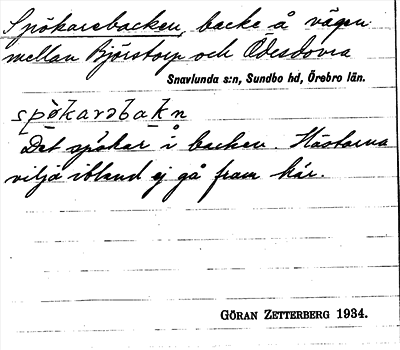 Spökarebacken, backe å vägen
mellan Björstorp och Ödesdovra
Snavlunda s:n, Sundbo hd, Örebro län.
spökarəbakn
Det spökar i backen. Hästarna
vilja ibland ej gå fram här.
GÖRAN ZETTERBERG 1934.